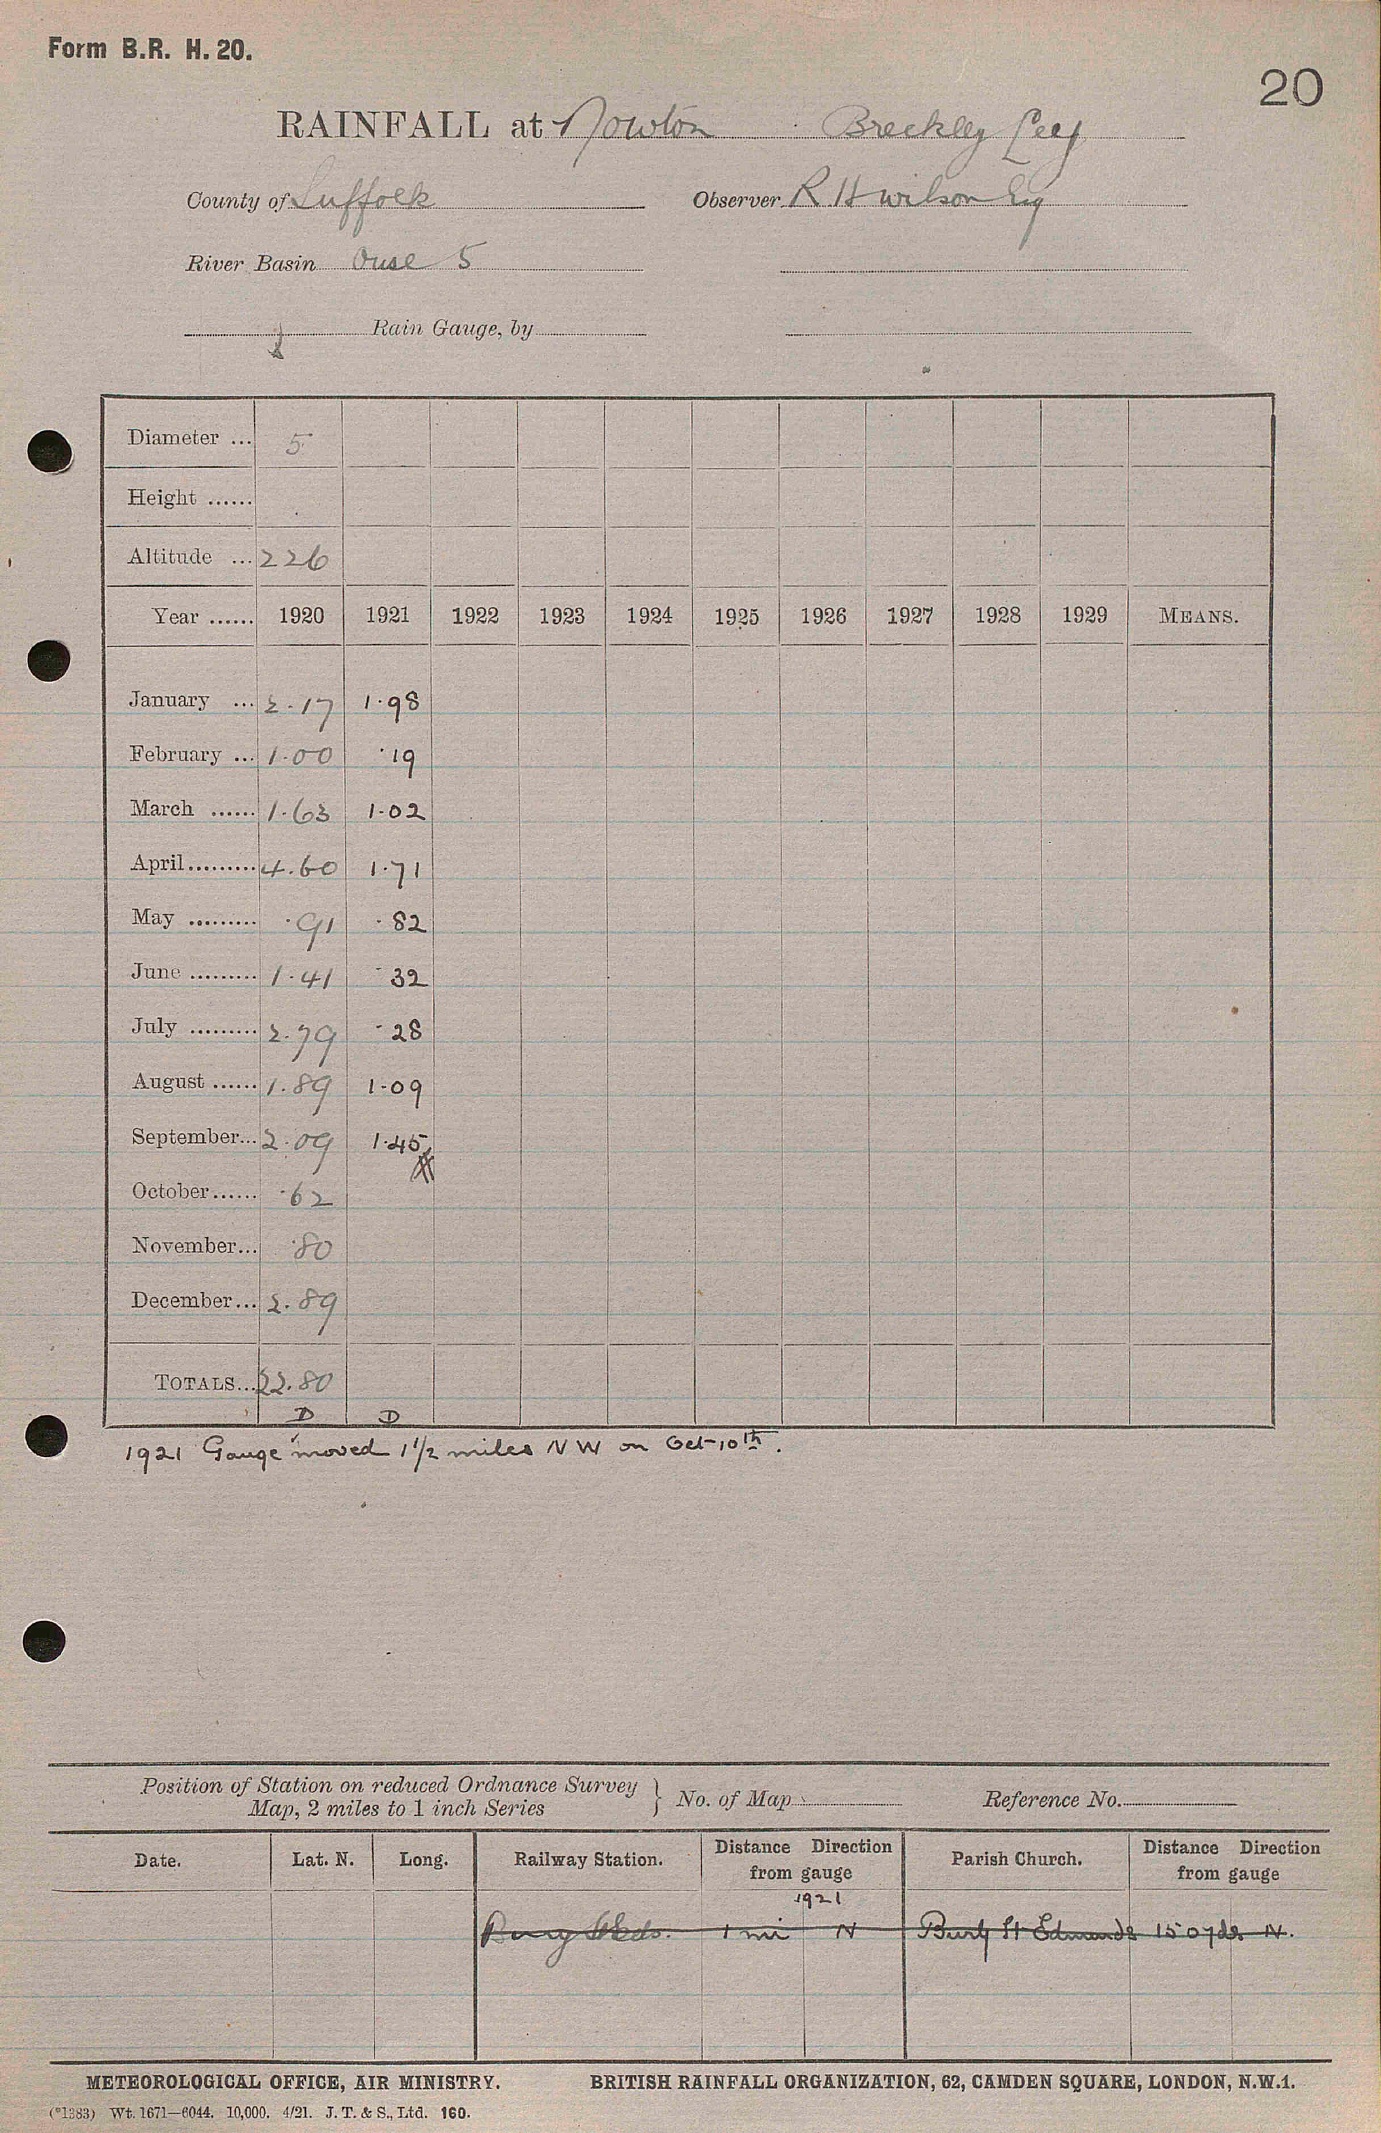 Form B.R. H. 20.
20
RAINFALL at Nowton Breckley Ley
County of Suffolk Observer R H Wilson Esq
River Basin Ouse 5
Rain Gauge, by
Diameter ... 5
Height ......
Altitude ... 226
Year ...... 1920 1921 1922 1923 1924 1925 1926 1927 1928 1929 MEANS.
January ... 2.17 1.98
February ... 1.00 .19
March ...... 1.63 1.02
April ......... 4.60 1.71
May ......... .91 .82
June ......... 1.41 .32
July ......... 2.79 .28
August ...... 1.89 1.09
September... 2.09 1.45
October...... .62
November... .80
December... 2.89
TOTALS... 22.80
D D
1921 Gauge moved 1 1/2 miles NW on Oct 10th.
Position of Station on reduced Ordnance Survey
Map, 2 miles to 1 inch Series } No. of Map Reference No.
Date. Lat. N. Long. Railway Station. Distance Direction from gauge Parish Church. Distance Direction from gauge
1921
Bury St Eds. 1 mi N Bury St Edmunds 150 yds N.
METEOROLOGICAL OFFICE, AIR MINISTRY. BRITISH RAINFALL ORGANIZATION, 62, CAMDEN SQUARE, LONDON, N.W.1.
(*1383) Wt. 1671—6044. 10,000. 4/21. J. T. & S., Ltd. 160.